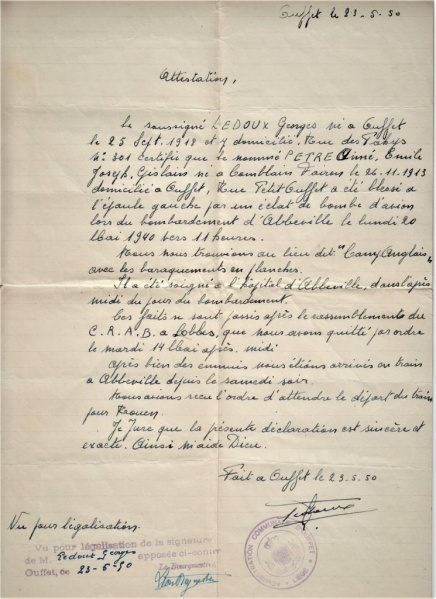 Ouffet le 23-5-50
Attestation.
Le soussigné LEDOUX Georges né à Ouffet
le 25 Sept. 1918 et y domicilié, Rue des Pahys
N° 301 certifie que le nommé PETRE Aimé, Emile
Joseph, Gislain né à Comblain Fairon le 26.11.1913
domicilié à Ouffet, Rue Petit Ouffet a été blessé à
l'épaule gauche par un éclat de bombe d'avion
lors du bombardement d'Abbeville le lundi 20
Mai 1940 vers 11 heures.
Nous nous trouvions au lieu dit: "Camp Anglais"
avec les baraquements en planches.
Il a été soigné à l'hôpital d'Abbeville, dans l'après
midi du jour du bombardement.
Ces faits se sont passés après le rassemblement du
C.R.A.B. à Lobbes, que nous avons quitté par ordre
le mardi 14 Mai après-midi
Après bien des ennuis nous étions arrivés en train
à Abbeville depuis le samedi soir.
Nous avions reçu l'ordre d'attendre le départ du train
pour Rouen.
Je Jure que la présente déclaration est sincère et
exacte. Ainsi m'aide Dieu.
Fait à Ouffet le 23.5.50
Vu pour légalisation.
Vu pour légalisation de la signature
de M. Ledoux Georges apposée ci-contre
Ouffet, ce 23-5-50
Le Bourgmestre,
ADMINISTRATION COMMUNALE OUFFET